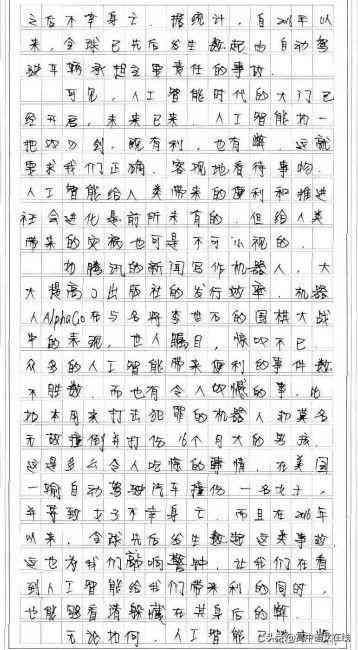 之后不幸身亡。据统计，自2016年以
来，全球已先后发生数起由自动驾
驶车辆承担主要责任的事故。
可见，人工智能时代的大门已
经开启，未来已来。人工智能如一
把双刃剑，既有利，也有弊，这就
要求我们正确、客观地看待事物。
人工智能给人类带来的便利和推进
社会进化是前所未有的，但给人类
带来的灾祸也可是不可小视的。
如腾讯的新闻写作机器人，大
大提高了出版社的发行效率，机器
人AlphaGo在与名将李世石的围棋大战
中的表现，世人瞩目，惊叹不已
众多的人工智能带来便利的事件数
不胜数，而也有令人叹憾的事，比
如本用来打击犯罪的机器人却莫名
无故撞倒并打伤16个月大的男孩，
这是多么令人吃惊的事情，在美国
一辆自动驾驶汽车撞伤一名女子，
并导致女子不幸身亡，而且在2016年
以来，全球先后发生数起这类事故，
这也为我们敲响警钟，让我们在看
到人工智能给我们带来利的同时，
也能够看清躲藏在其身后的弊。
无论如何，人工智能已
头条@高中语文在线